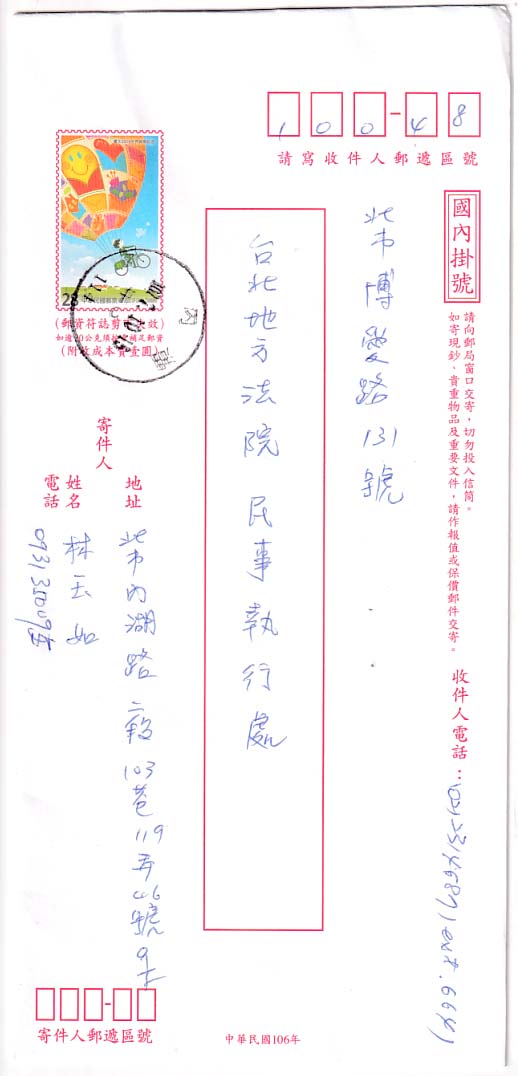 100-48
請寫收件人郵遞區號
國內掛號
請向郵局窗口交寄,切勿投入信筒。
如寄現鈔、貴重物品及重要文件,請作報值或保價郵件交寄。
收件人電話:
ext. 664
北市博愛路131號
台北地方法院 民事執行處
28
(郵資符誌剪
效)
(附收成本費壹圓)
寄件人
地址
北市內湖路二段103巷119弄46號9F
姓名
林玉如
電話
寄件人郵遞區號
中華民國106年